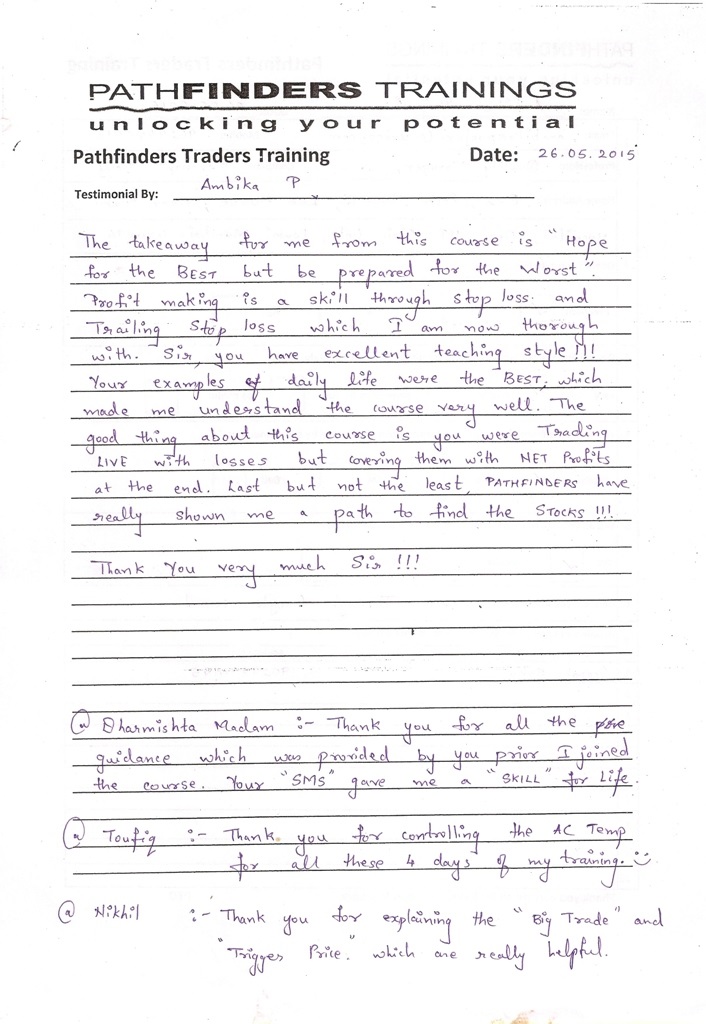 PATHFINDERS TRAININGS
unlocking your potential
Pathfinders Traders Training Date: 26.05.2015
Testimonial By: Ambika P
The takeaway for me from this course is "Hope
for the BEST but be prepared for the Worst".
Profit making is a skill through stop loss and
Trailing Stop loss which I am now thorough
with. Sir, you have excellent teaching style!!!
Your examples of daily life were the BEST, which
made me understand the course very well. The
good thing about this course is you were Trading
LIVE with losses but covering them with NET Profits
at the end. Last but not the least, PATHFINDERS have
really shown me a path to find the STOCKS !!!
Thank You very much Sir !!!
@ Dharmishta Madam :- Thank you for all the
guidance which was provided by you prior I joined
the course. Your "SMS" gave me a "SKILL" for Life.
@ Toufiq :- Thank you for controlling the AC Temp
for all these 4 days of my training. :)
@ Nikhil :- Thank you for explaining the "Big Trade" and
"Trigger Price." which are really helpful.